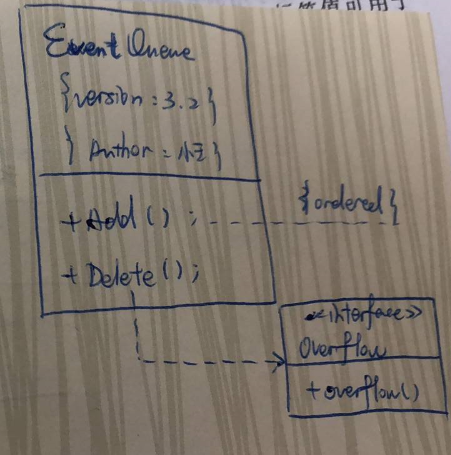 值可用于
Event Queue
{version : 3.2}
{ Author = 小王}
+ Add ( ) ;
{ordered}
+ Delete ( ) ;
<<interface>>
Overflow
+ overflow( )